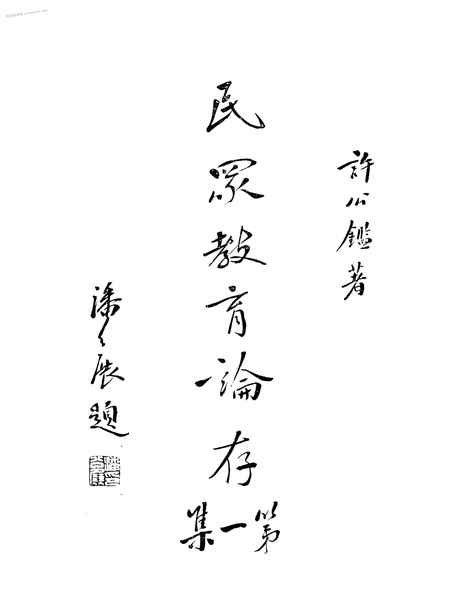 許公鑑著
民眾教育論存
第一集
潘公展題